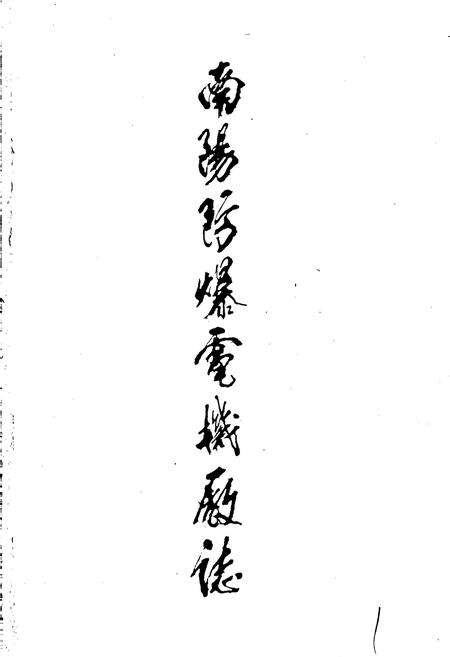 南陽防爆電機廠誌